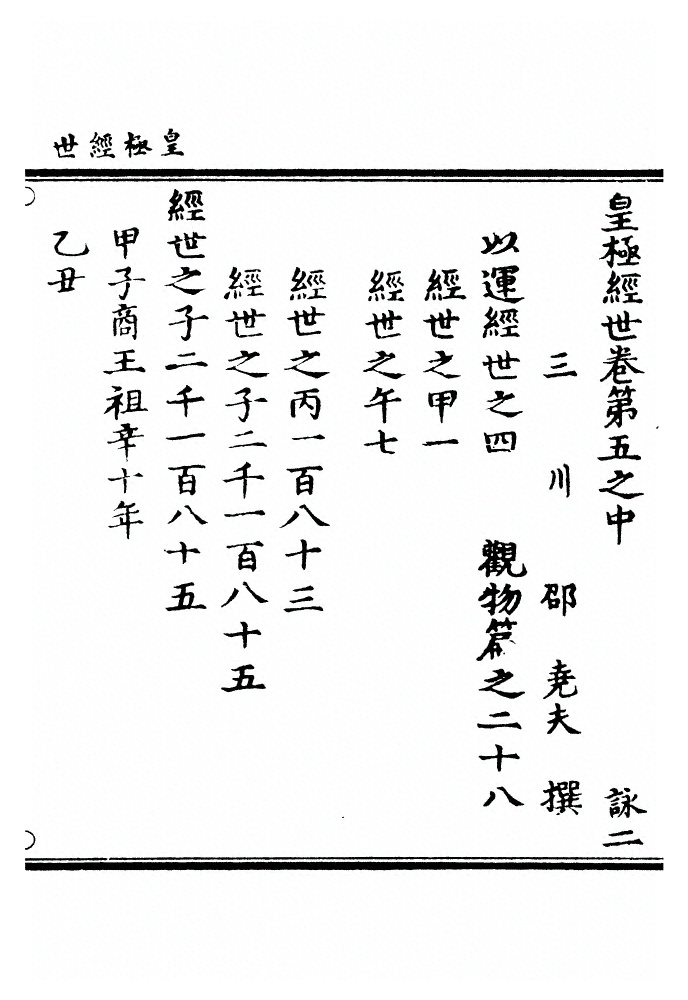 皇極經世
皇極經世卷第五之中　詠二
三川　邵堯夫　撰
以運經世之四　觀物篇之二十八
經世之甲一
經世之午七
經世之丙一百八十三
經世之子二千一百八十五
經世之子二千一百八十五
甲子商王祖辛十年
乙丑